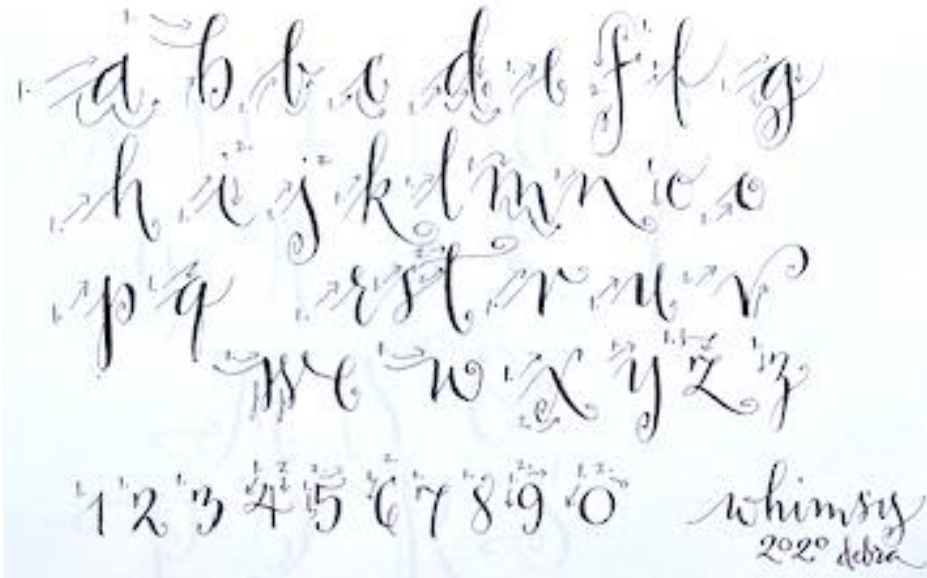 a b b c d e f f g
h i j k l m n o o
p q r s t r u v
w e w x y z z
1 2 3 4 5 6 7 8 9 0
whimsy
2020 debra